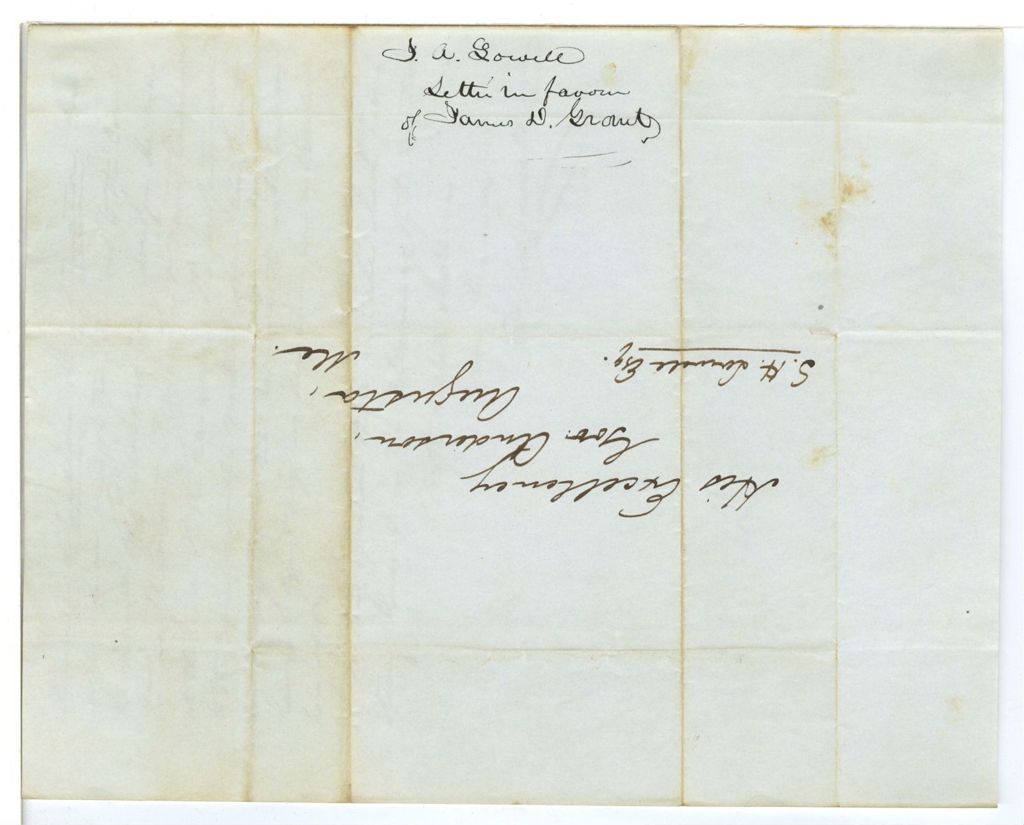 J. A. Lowell
Letter in favour
of James D. Grant
His Excellency
Gov. Anderson,
Augusta,
Me.
S. H. Lowell Esq.